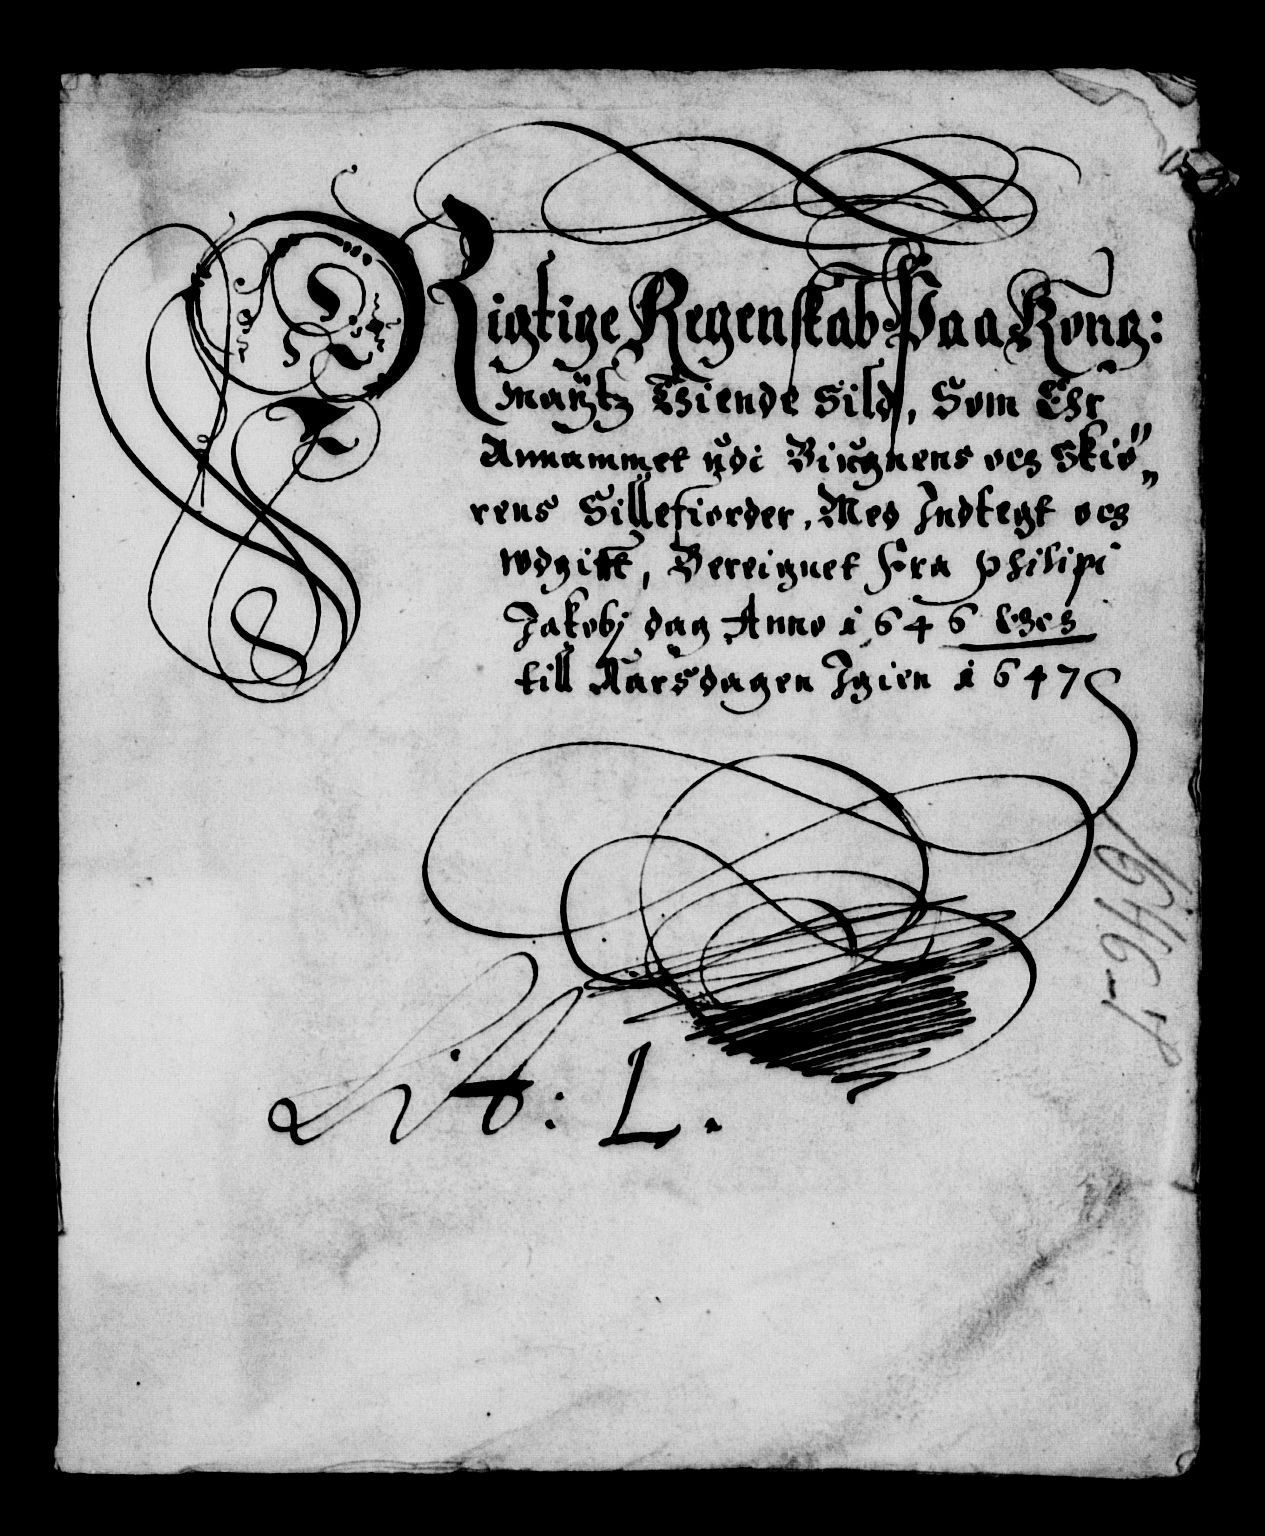 Rigtige Regenskab Paa Kong:
Maÿtz Thiende Sild, Som Ehr
Annammet ŭdi Birgnens och Skiø„
rens Sillefiorder, Med Indtegt och
wdgifft, Bereignet Fra Philipi
Jakobj dag Anno 1646 Och
till Aarsdagen Igien 1647
Lit: L.
1646-47